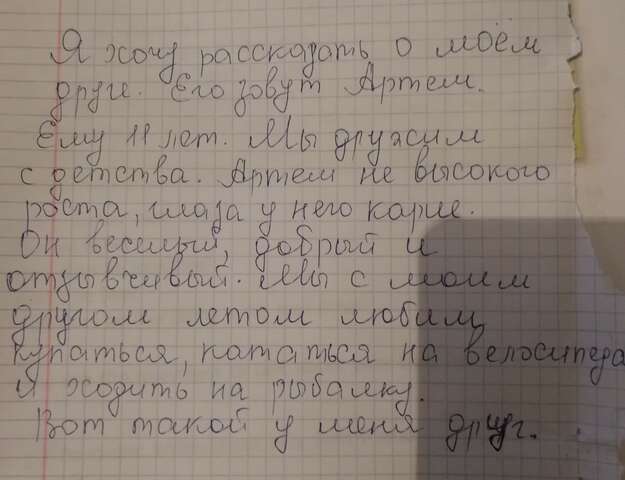 Я хочу рассказать о моём
друге. Его зовут Артем.
Ему 11 лет. Мы дружим
с детства. Артем не высокого
роста, глаза у него карие.
Он веселый, добрый и
отзывчивый. Мы с моим
другом летом любим
купаться, кататься на велосипеде
и ходить на рыбалку.
Вот такой у меня друг.